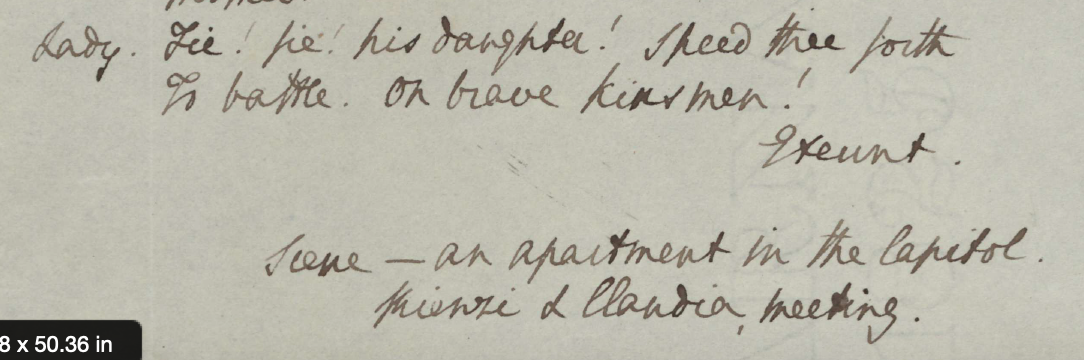 Lady. Fie! fie! his daughter! Speed thee forth
To battle. On brave kinsmen!
Exeunt.
Scene – an apartment in the Capitol.
Rienzi & Claudia, meeting.
8 x 50.36 in